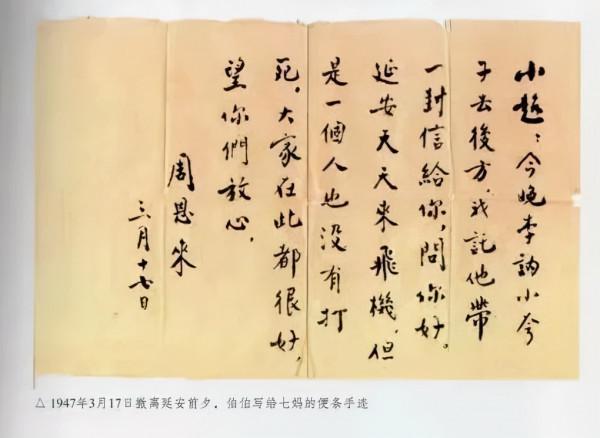 小超：今晚李訥小夸
子去後方，我託他帶
一封信給你，問你好。
延安天天來飛機，但
是一個人也没有打
死，大家在此都很好，
望你們放心，
周恩来
三月十七日
△ 1947年3月17日撤离延安前夕，伯伯写给七妈的便条手迹